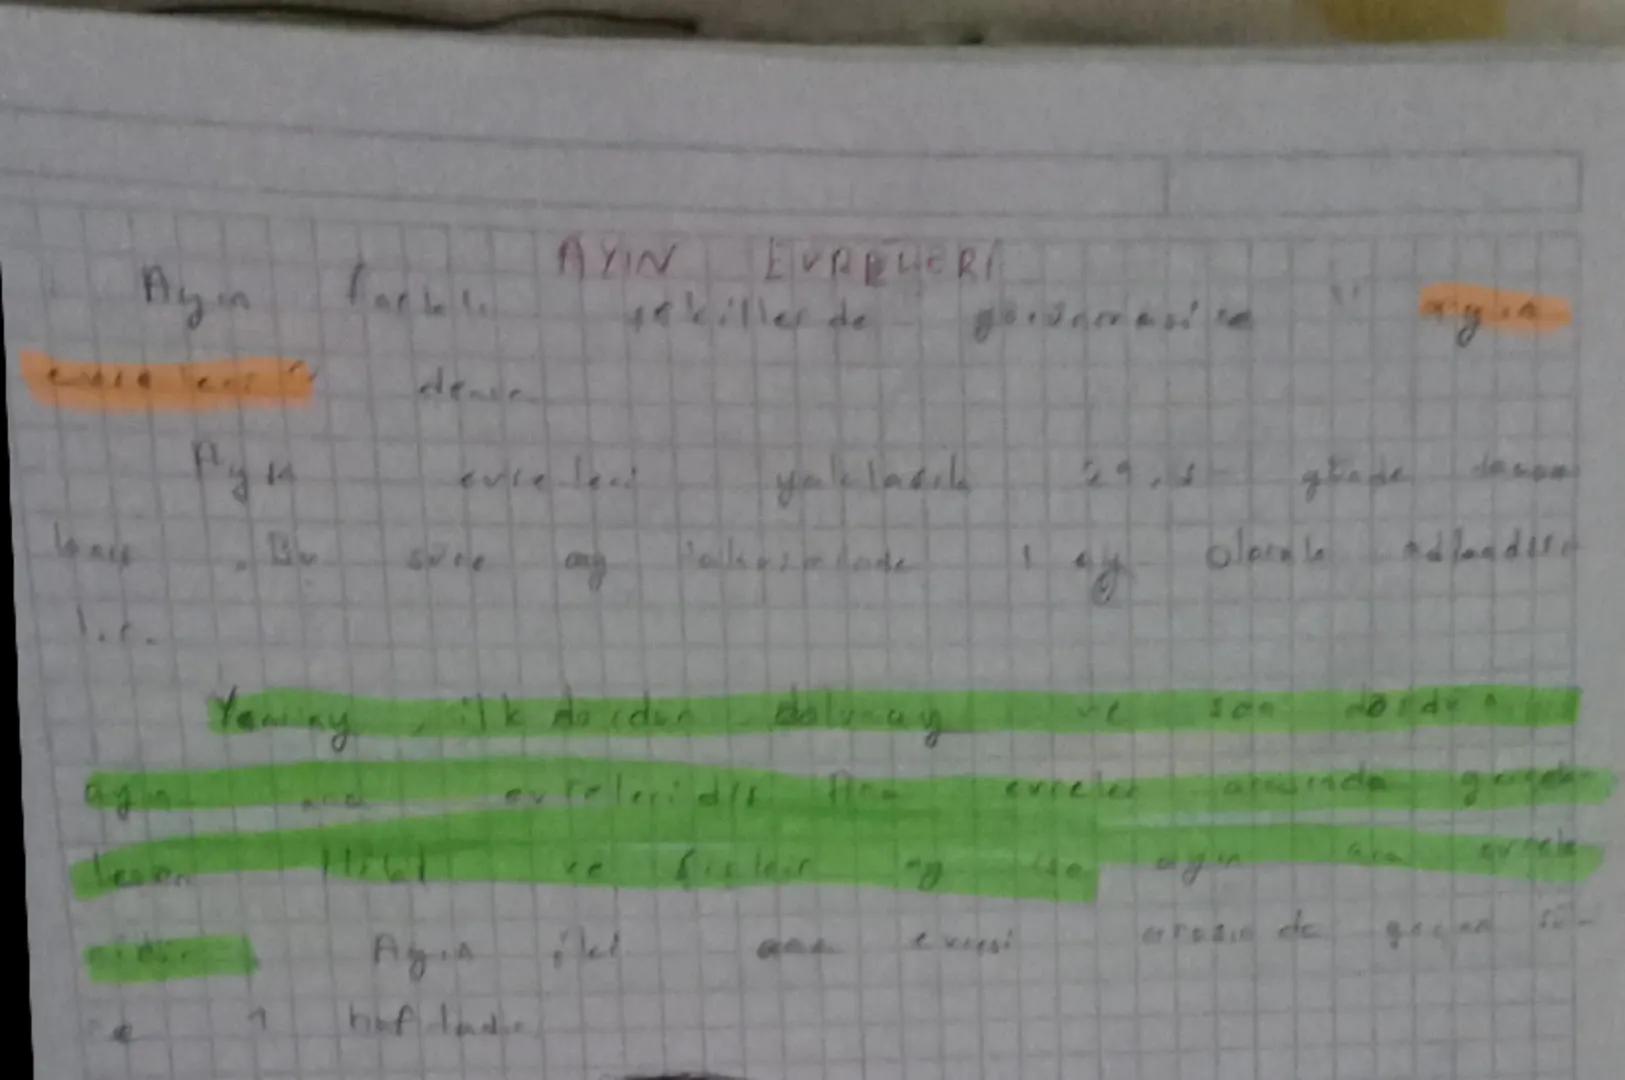 AYIN EVRELERİ
Ayın farklı şekillerde görünmesine " ayın
evreleri" denir
Ayın evreleri yaklaşık 29,5 günde tamam
lanır. Bu süre ay takviminde 1 ay olarak adlandırı
lır.
Yeniay, ilk dördün dolunay ve son dördün
ayın ana evreleridir Ana evreler arasında gerçek
leşen Hilal ve şişkin ay ise ayın ara evrele
ridir. Ayın iki ana evresi arasında geçen sü-
re 1 haftadır